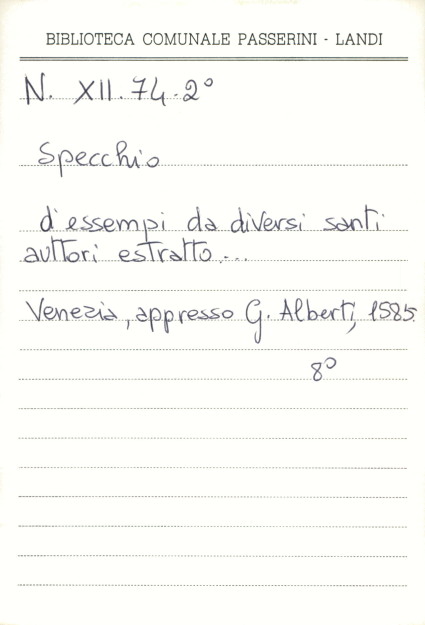 BIBLIOTECA COMUNALE PASSERINI - LANDI
N. XII.74.2°
Specchio
d'essempi da diversi santi
auttori estratto...
Venezia, appresso G. Alberti, 1585
8°